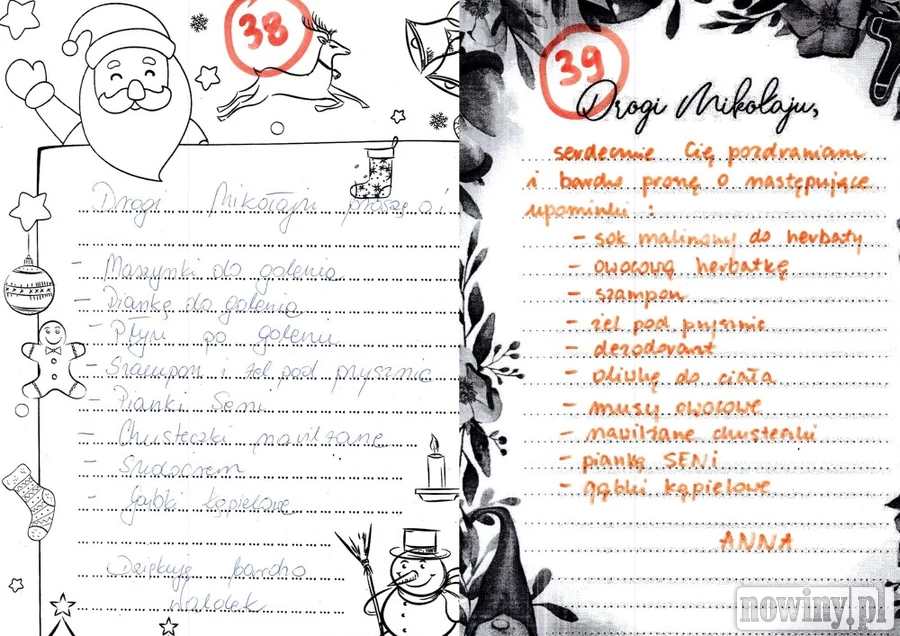 38
Drogi Mikołaju proszę o:
- Maszynki do golenia
- Piankę do golenia
- Płyn po goleniu
- Szampon i żel pod prysznic
- Pianki Seni
- Chusteczki nawilżane
- Sudocrem
- Gąbki kąpielowe
Dziękuję bardzo
Waldek
39
Drogi Mikołaju,
serdecznie Cię pozdrawiam
i bardzo proszę o następujące
upominki:
- sok malinowy do herbaty
- owocową herbatkę
- szampon
- żel pod prysznic
- dezodorant
- oliwkę do ciała
- musy owocowe
- nawilżane chusteczki
- piankę SENI
- gąbki kąpielowe
ANNA
nowiny.pl